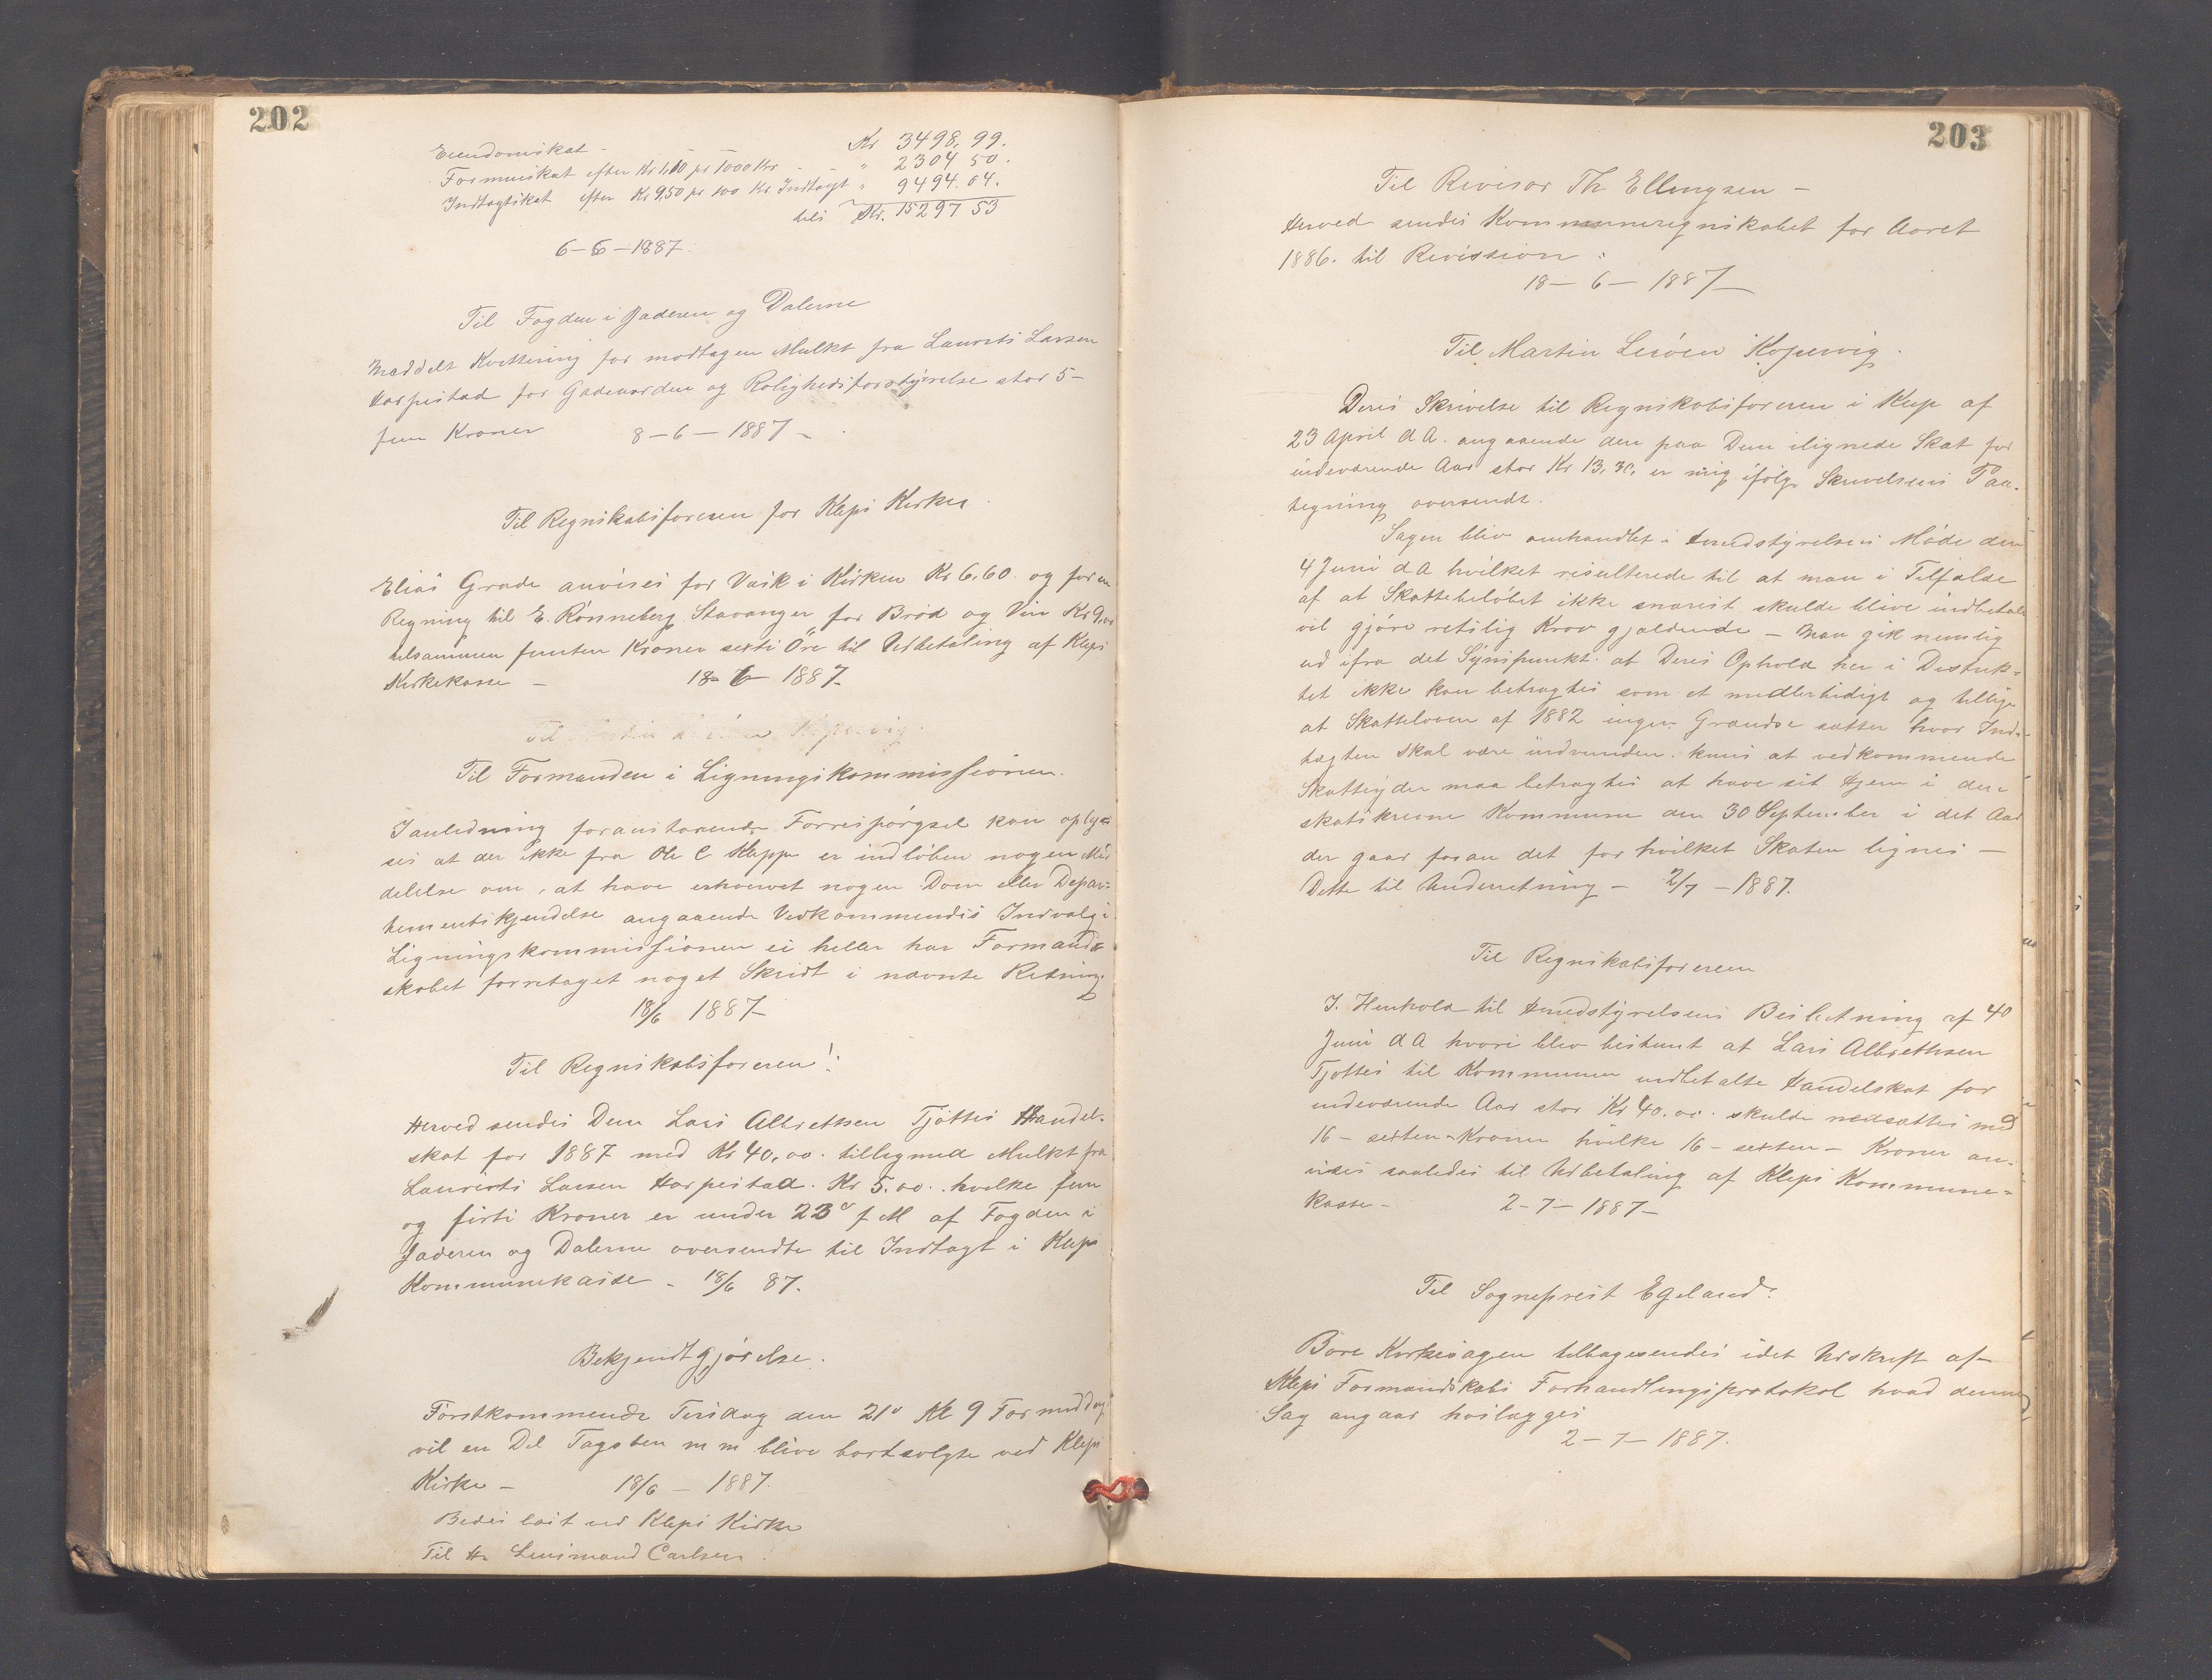 202
Eiendomskat - Kr 3498,99.
Formuiskat efter Kr 1,10 pr 1000 Kr - " 2304 50.
Indtægtskat efter Kr 9,50 pr 100 Kr Indtægt " 9494.04.
tils Kr. 15297 53
6-6-1887.
Til Fogden i Jæderen og Dalerne
Meddelt Kvittering for modtagen Mulkt fra Laurits Larsen
Harpestad for Gadeuorden og Rolighedsforstyrrelse stor 5-
fem Kroner 8-6-1887-
Til Regnskabsføreren for Kleps Kirke
Elias Grude anvises for Vask i Kirken Kr 6.60 og for en
Regning til E. Rønneberg Stavanger for Brød og Vin Kr 9,00
tilsammen femten Kroner sexti Öre til Udbetaling af Kleps
Kirkekasse - 18-6-1887-
Til Formanden i Ligningskommissionen.
I anledning foranstaaende Forrespørgsel kan oply-
ses at der ikke fra Ole C Klepp er indløben nogen Med
delelse om, at have erhvervet nogen Dom eller Depar-
tementskjendelse angaaende Vedkommendes Indvalg i
Ligningskommissionen ei heller har Formand-
skabet forretaget noget Skridt i nævnte Retning.
18/6 1887-
Til Regnskabsføreren!
Herved sendes Dem Lars Albrethsen Tjøttes Handel-
skat for 1887 med Kr 40,00. tilligemed Mulkt fra
Laurits Larsen Harpestad. Kr 5.00. hvilke fem
og førti Kroner er under 23de f M af Fogden i
Jæderen og Dalerne oversendte til Indtægt i Klep
Kommunekasse - 18/6 87.
Bekjendtgjørelse.
Førstkommende Tirsdag den 21de Kl 9 Formiddag
vil en Del Tagsten m m blive bortsolgte ved Kleps
Kirke - 18/6 - 1887.
Bedes læst ved Kleps Kirke
Til Hr Lensmand Carlsen!
203
Til Revisor Th Ellingsen -
Herved sendes Kommuneregnskabet for Aaret
1886. til Revission:
18-6-1887-
Til Martin Kopervig.
Deres Skrivelse til Regnskabsføreren i Klep af
23 April d A. angaaende den paa Dem ilignede Skat for
indeværende Aar stor Kr 13,30, er mig ifølge Skrivelsens Paa-
tegning oversendt.
Sagen blev omhandlet i Herredstyrelsens Møde den
4 Juni d A hvilket resulterede til at man i Tilfælde
af at Skattebeløbet ikke snarest skulde blive indbetalt
vil gjøre retslig Krav gjældende - Man gik nemlig
ud ifra det Synspunkt at Deres Ophold her i Distrik-
tet ikke kan betragtes som et midlertidigt og tillige
at Skatteloven af 1882 ingen Grændse sætter hvor Ind-
tægten skal være indvunden. kuns at vedkommende
Skatteyder maa betragtes at have sit Hjem i den
skatskrevne Kommune den 30 September i det Aar
der gaar foran det for hvilket Skaten lignes -
Dette til Underretning - 2/7 - 1887.
Til Regnskabsføreren
I. Henhold til Herredstyrelsens Beslutning af 4de
Juni d A hvori blev bestemt at Lars Albrethsen
Tjøttes til Kommunen indbetalte Handelskat for
indeværende Aar stor Kr 40.00. skulde nedsættes med
16 - sexten - Kroner hvilke 16 - sexten - Kroner an-
vises saaledes til Udbetaling af Kleps Kommune-
kasse - 2-7-1887-
Til Sogneprest Egeland.
Bore Kirkesagen tilbagesendes idet Udskrift af
Kleps Formandskabs Forhandlingsprotokol hvad denne
Sag angaar hoslægges
2-7-1887.